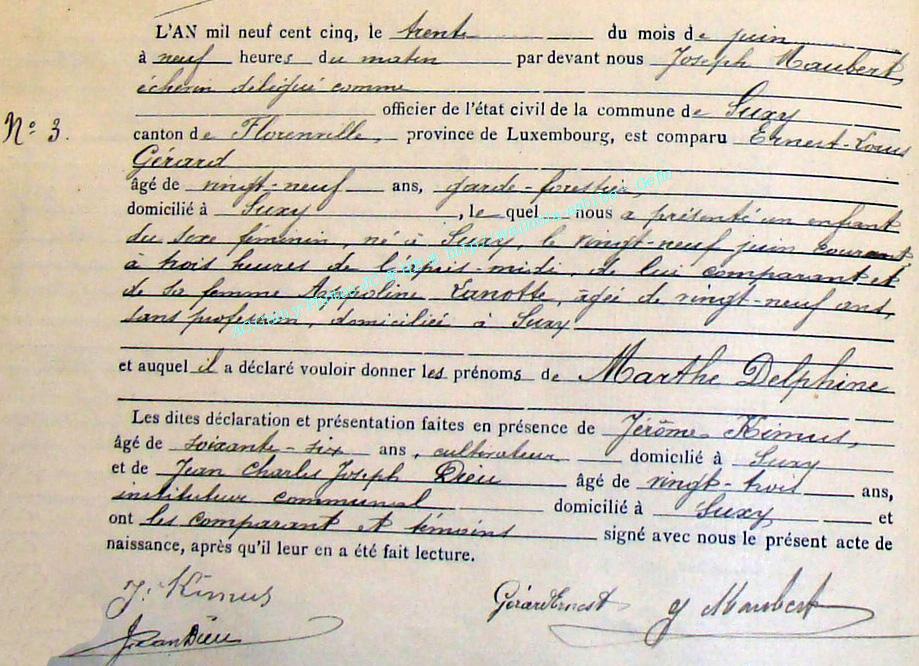 L'AN mil neuf cent cinq, le trente du mois de juin
à neuf heures du matin par devant nous Joseph Maubert,
échevin délégué comme
officier de l'état civil de la commune de Suxy
N° 3.
canton de Florenville, province de Luxembourg, est comparu Ernest-Louis
Gérard
âgé de vingt-neuf ans, garde-forestier,
domicilié à Suxy, le quel nous a présenté un enfant
du sexe féminin, né à Suxy, le vingt-neuf juin courant,
à trois heures de l'après-midi, de lui comparant et
de sa femme Appoline Lanotte, âgée de vingt-neuf ans,
sans profession, domiciliée à Suxy
et auquel il a déclaré vouloir donner les prénoms de Marthe Delphine
Les dites déclaration et présentation faites en présence de Jérôme Kimus,
âgé de soixante-six ans, cultivateur domicilié à Suxy
et de Jean Charles Joseph Dieu âgé de vingt-trois ans,
instituteur communal domicilié à Suxy et
ont les comparant et témoins signé avec nous le présent acte de
naissance, après qu'il leur en a été fait lecture.
J. Kimus
Gérard Ernest
J Maubert
Jean Dieu